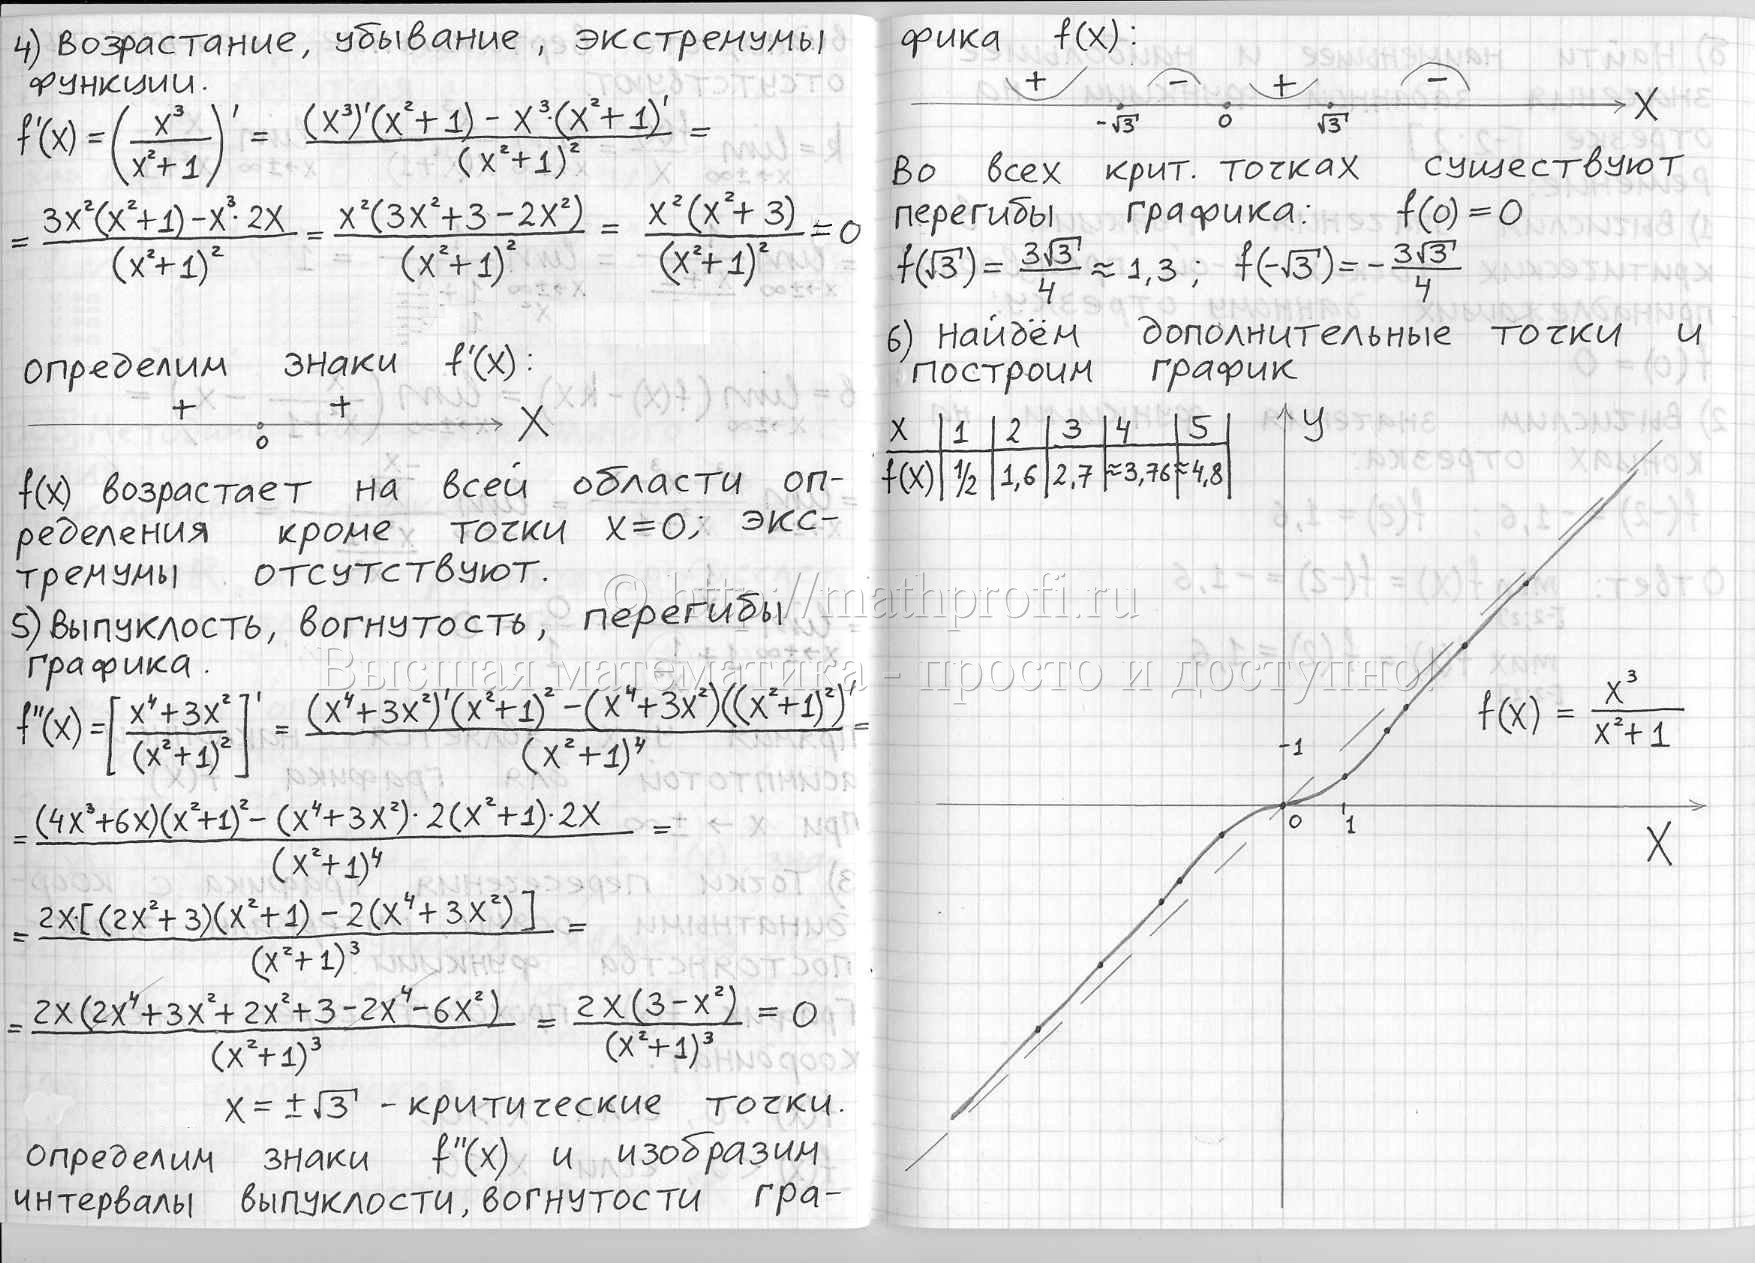 4) Возрастание, убывание, экстремумы
функции.
f'(x) = (x³/(x²+1))' = ((x³)'(x²+1) − x³·(x²+1)')/(x²+1)² =
= (3x²(x²+1) − x³·2x)/(x²+1)² = x²(3x²+3−2x²)/(x²+1)² = x²(x²+3)/(x²+1)² = 0
определим знаки f'(x):
+ +
0 X
f(x) возрастает на всей области оп-
ределения кроме точки x=0; экс-
тремумы отсутствуют.
5) Выпуклость, вогнутость, перегибы
графика.
f''(x) = [(x⁴+3x²)/(x²+1)²]' = ((x⁴+3x²)'(x²+1)² − (x⁴+3x²)((x²+1)²)')/(x²+1)⁴ =
= ((4x³+6x)(x²+1)² − (x⁴+3x²)·2(x²+1)·2x)/(x²+1)⁴ =
= 2x·[(2x²+3)(x²+1) − 2(x⁴+3x²)]/(x²+1)³ =
= 2x(2x⁴+3x²+2x²+3−2x⁴−6x²)/(x²+1)³ = 2x(3−x²)/(x²+1)³ = 0
x = ±√3 - критические точки.
определим знаки f''(x) и изобразим
интервалы выпуклости, вогнутости гра-
фика f(x):
+ − + −
-√3 0 √3 X
Во всех крит. точках существуют
перегибы графика: f(0) = 0
f(√3) = 3√3/4 ≈ 1,3; f(-√3) = -3√3/4
6) Найдём дополнительные точки и
построим график
x | 1 | 2 | 3 | 4 | 5 |
f(x) | 1/2 | 1,6 | 2,7 | ≈3,76 | ≈4,8 |
y
f(x) = x³/(x²+1)
-1
0 1
X
© http://mathprofi.ru
Высшая математика - просто и доступно!